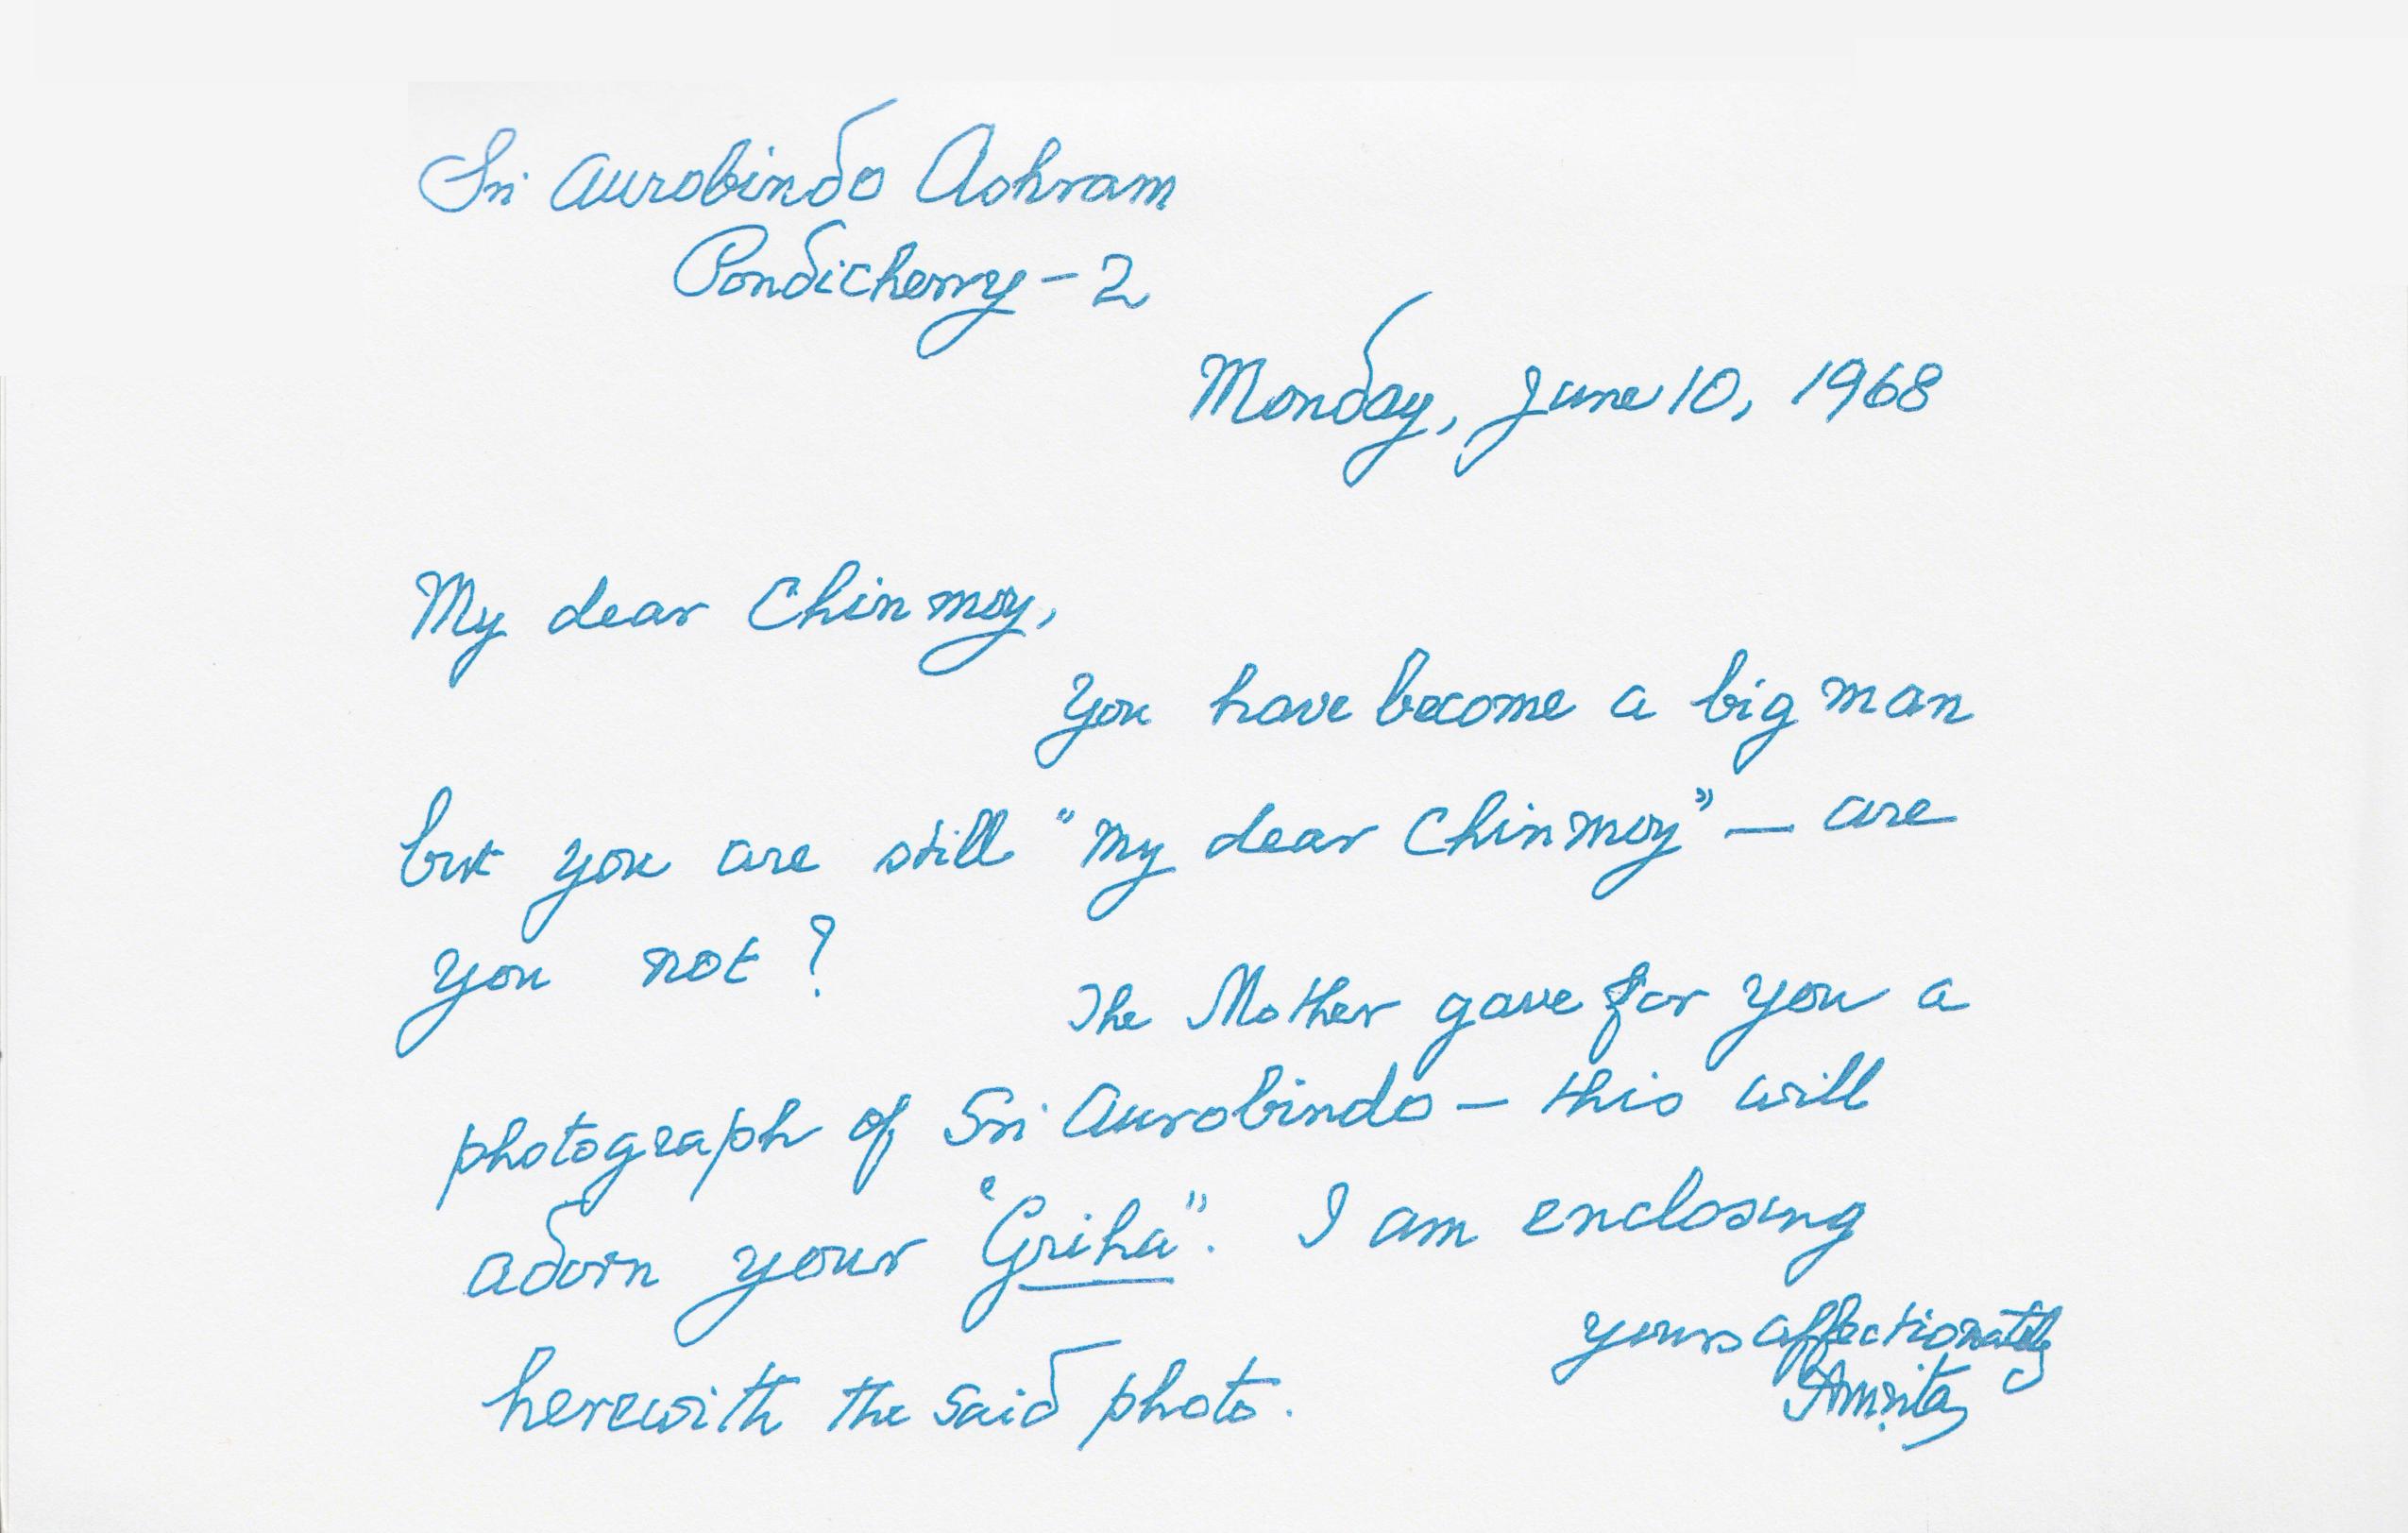 Sri Aurobindo Ashram
Pondicherry - 2
Monday, June 10, 1968
My dear Chinmoy,
You have become a big man
but you are still "my dear Chinmoy" — are
you not?
The Mother gave for you a
photograph of Sri Aurobindo — this will
adorn your "Griha". I am enclosing
herewith the said photo.
yours affectionately
Amrita